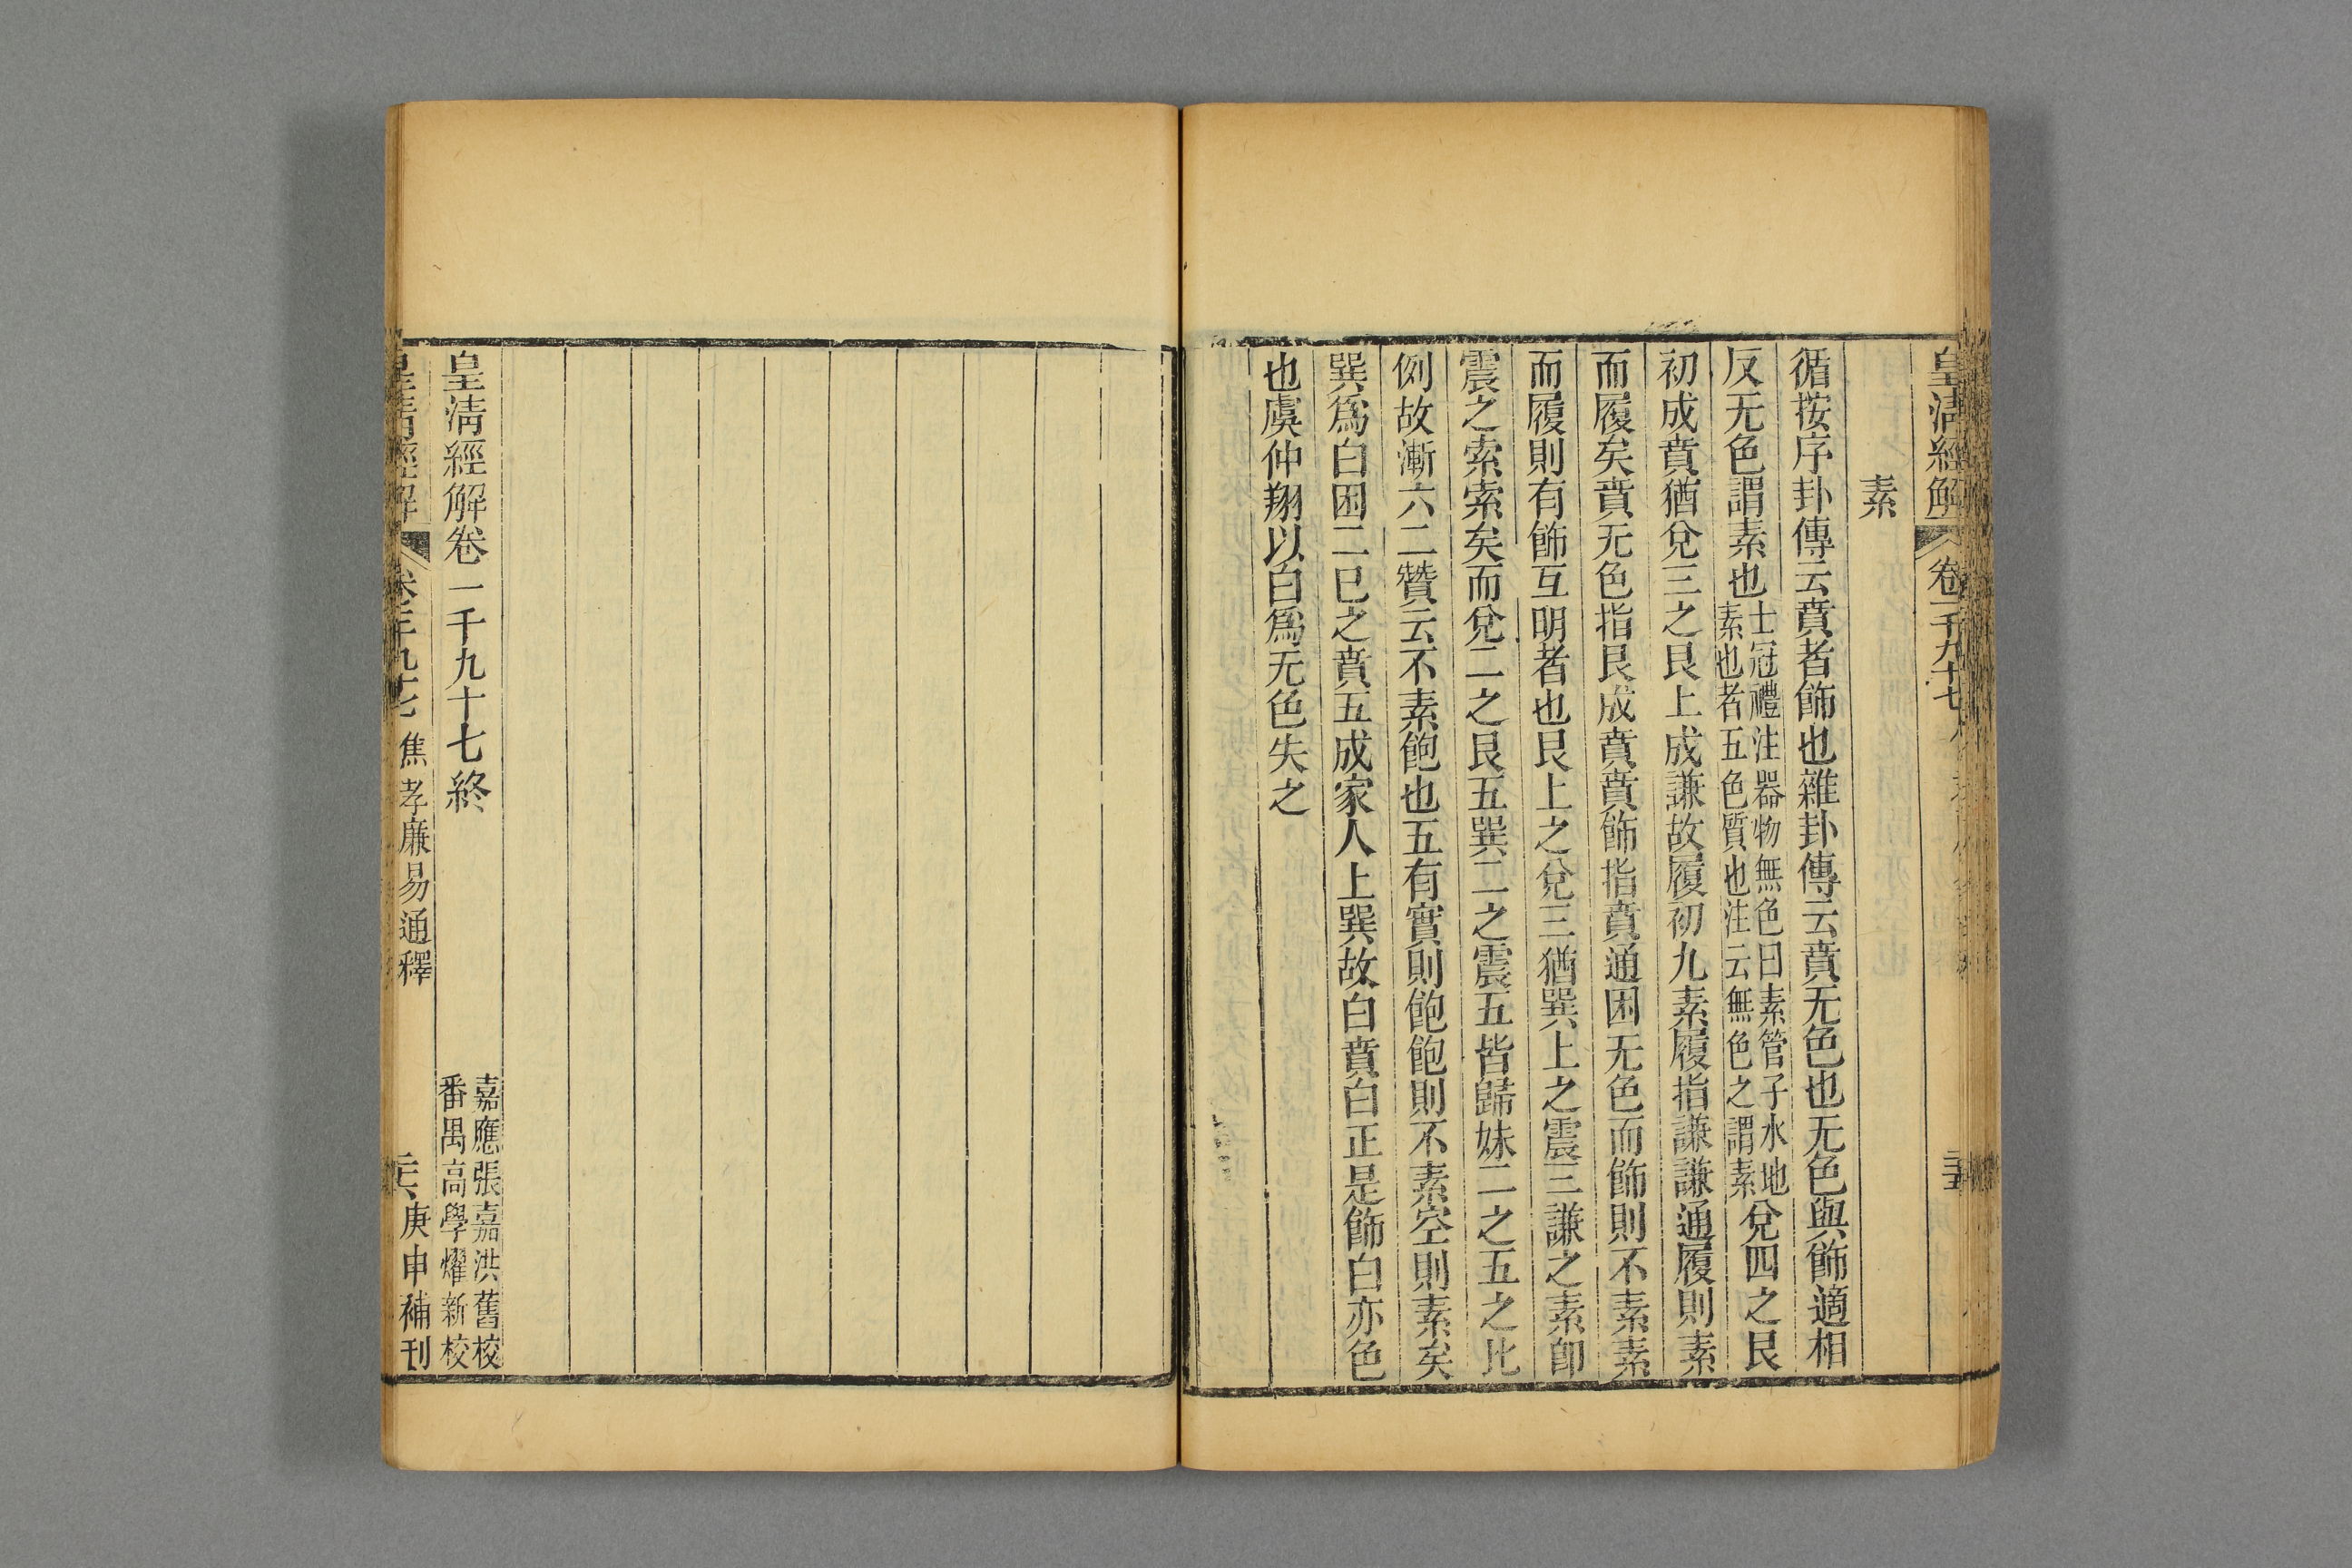 皇清經解
卷一千九十七
素
循按序卦傳云賁者飾也雜卦傳云賁无色也无色與飾適相
反无色謂素也
士冠禮注器物無色曰素管子水地
素也者五色質也注云無色之謂素
兌四之艮
初成賁猶兌三之艮上成謙故履初九素履指謙謙通履則素
而履矣賁无色指艮成賁賁飾指賁通困无色而飾則不素素
而履則有飾互明者也艮上之兌三猶巽上之震三謙之素卽
震之索索矣而兌二之艮五巽二之震五皆歸妹二之五之比
例故漸六二贊云不素飽也五有實則飽飽則不素空則素矣
巽爲白困二已之賁五成家人上巽故白賁白正是飾白亦色
也虞仲翔以白爲无色失之
皇清經解卷一千九十七終
嘉應張嘉洪舊校
番禺高學燿新校
皇清經解
焦孝廉易通釋
庚申補刊